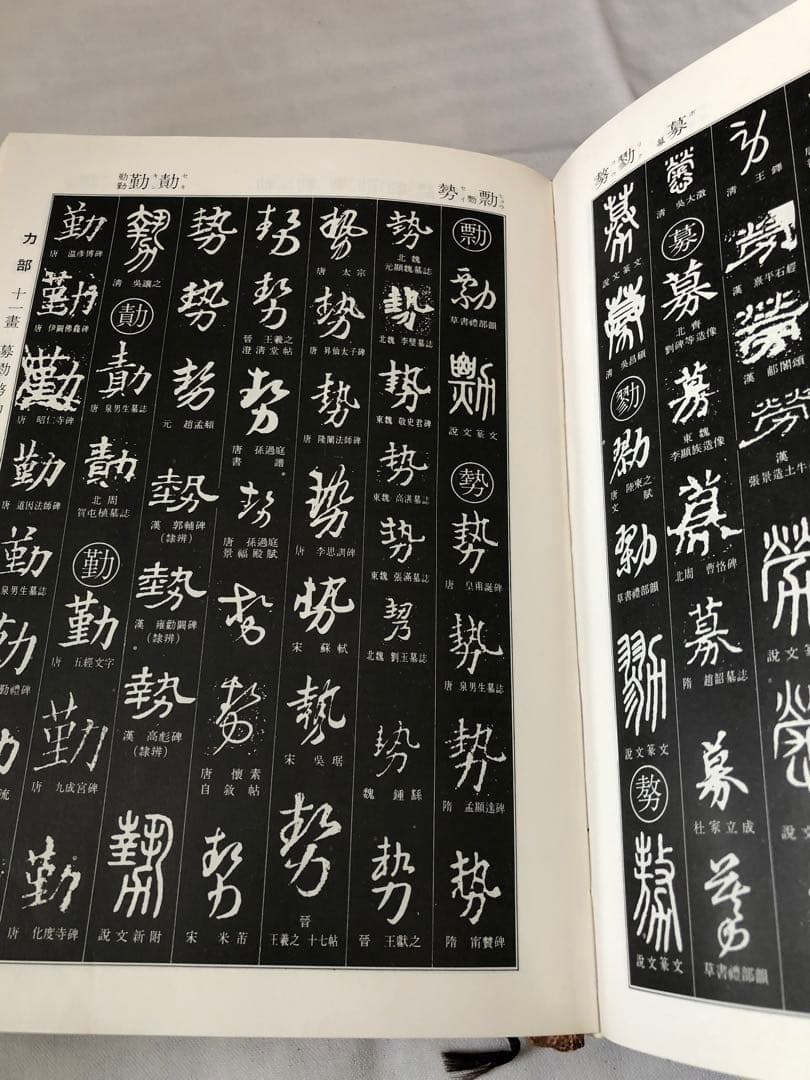 募
清 王鐸
漢 熹平石經
漢 郙閣頌
漢
張景造土牛
說文篆文
清 吳大澂
募
北齊
劉碑等造像
東魏
李顯族造像
北周 曹恪碑
隋 趙韶墓誌
杜家立成
草書禮部韻
說文篆文
清 吳昌碩
勠
唐 陸柬之
文賦
草書禮部韻
說文篆文
說文篆文
勡
勢
勣
勤
勡
草書禮部韻
說文篆文
勢
唐 皇甫誕碑
唐 泉男生墓誌
隋 孟顯達碑
隋 甯贙碑
北魏
元顯魏墓誌
北魏 李璧墓誌
東魏 敬史君碑
東魏 高湛墓誌
東魏 張滿墓誌
北魏 劉玉墓誌
魏 鍾繇
晉 王獻之
唐 太宗
唐 昇仙太子碑
唐 隆闡法師碑
唐 李思訓碑
宋 蘇軾
宋 吳琚
晉
王羲之 十七帖
晉 王羲之
澄清堂帖
唐 孫過庭
書譜
唐 孫過庭
景福殿賦
唐 懷素
自敘帖
宋 米芾
元 趙孟頫
漢 郭輔碑
(隸辨)
漢 雍勸闕碑
(隸辨)
漢 高彪碑
(隸辨)
說文新附
清 吳讓之
勣
唐 泉男生墓誌
北周
賀屯植墓誌
勤
唐 五經文字
唐 九成宮碑
唐 化度寺碑
唐 溫彥博碑
唐 伊闕佛龕碑
唐 昭仁寺碑
唐 道因法師碑
泉男生墓誌
勤禮碑
流
力部 十一畫